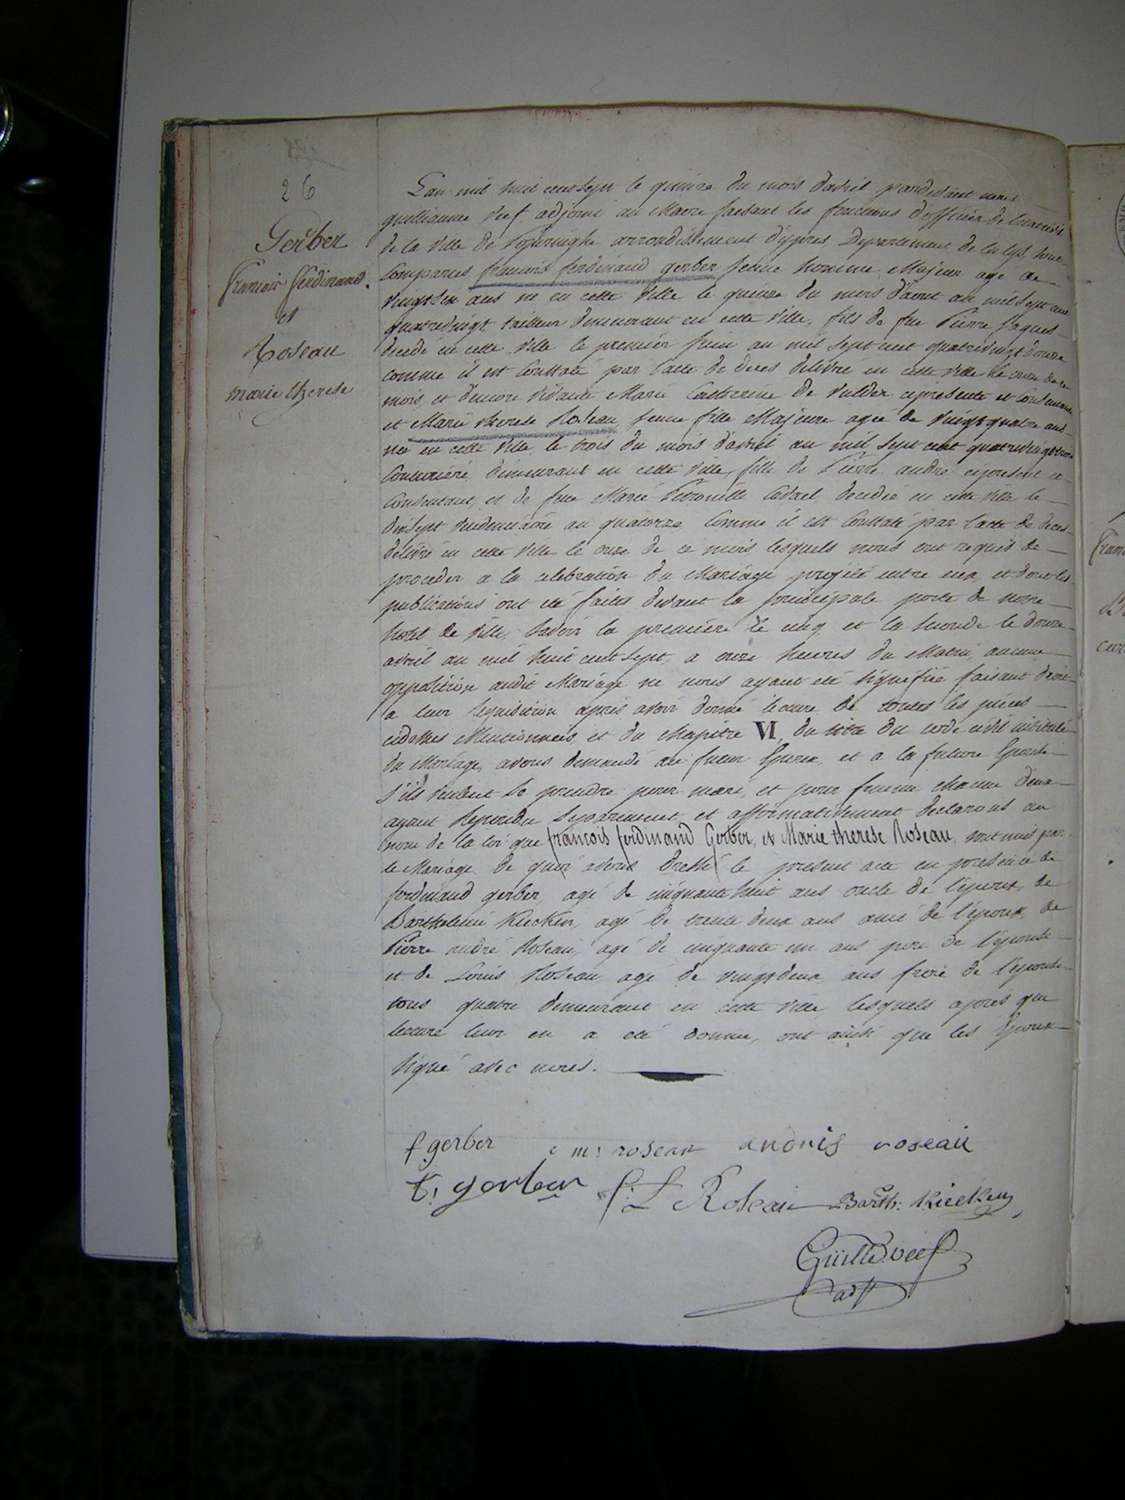 26
Gerber
francois ferdinand.
et
Roseau
marie therese
L'an mil huit cent sept le quinze du mois d'avril pardevant nous
guillaume veef adjoint au Maire faisant les fonctions d'officier de l'etat civil
de la ville de poperinghe arrondissement d'ypres Departement de la lys sont
comparus francois ferdinand gerber jeune homme Majeur agé de
vingt six ans né en cette ville le quinze du mois d'aout an mil sept cent
quatrevingt tailleur demeurant en cette ville, fils de feu Pierre jaques
decedé en cette ville le premier juin an mil sept cent quatrevingt douze
comme il est constaté par l'acte de deces delivré en cette ville le onze de ce
mois et d'encore vivante Marie Catherine de Mulder cipresente et consentante
et Marie therese Roseau jeune fille Majeure agée de vingt quatre ans
née en cette ville le trois du mois d'avril an mil sept cent quatrevingt trois
couturière demeurant en cette ville fille de Pierre andré cipresent et
consentant, et de feue Marie Petronille decedée en cette ville le
dixsept vendemiaire an quatorze comme il est constaté par l'acte de deces
delivré en cette ville le onze de ce mois lesquels nous ont requis de
proceder a la celebration du Mariage projeté entre eux, et dont les
publications ont été faites devant la principale porte de notre
hotel de ville, savoir la premiere le cinq et la seconde le douze
avril an mil huit cent sept, a onze heures du Matin, aucune
opposition audit Mariage ne nous ayant été signifiée faisant droit
a leur requisition après avoir donné lecture de toutes les pièces
cidessus Mentionnées, et du chapitre VI du titre du code civil intitulé
du Mariage, avons demandé au futur Epoux, et a la future Epouse
s'ils veulent se prendre pour mari, et pour femme chacun d'eux
ayant repondu separement et affirmativement declarons au
nom de la loi que francois ferdinand Gerber, et Marie therese Roseau, sont unis par
le Mariage de quoi avons dressé le present acte en presence de
ferdinand gerber, agé de cinquante huit ans oncle de l'epoux, de
Barthelemi Kiecken, agé de trente deux ans ami de l'epoux, de
Pierre andré Roseau, agé de cinquante un ans pere de l'épouse
et de Louis Roseau agé de vingtdeux ans frere de l'epouse
tous quatre demeurant en cette ville lesquels après que
lecture leur en a été donnée, ont ainsi que les Epoux
signé avec nous.
f gerber m: roseau andris roseau
f: gerber L Roseau Barth: Kiecken
Guille veef
adjt